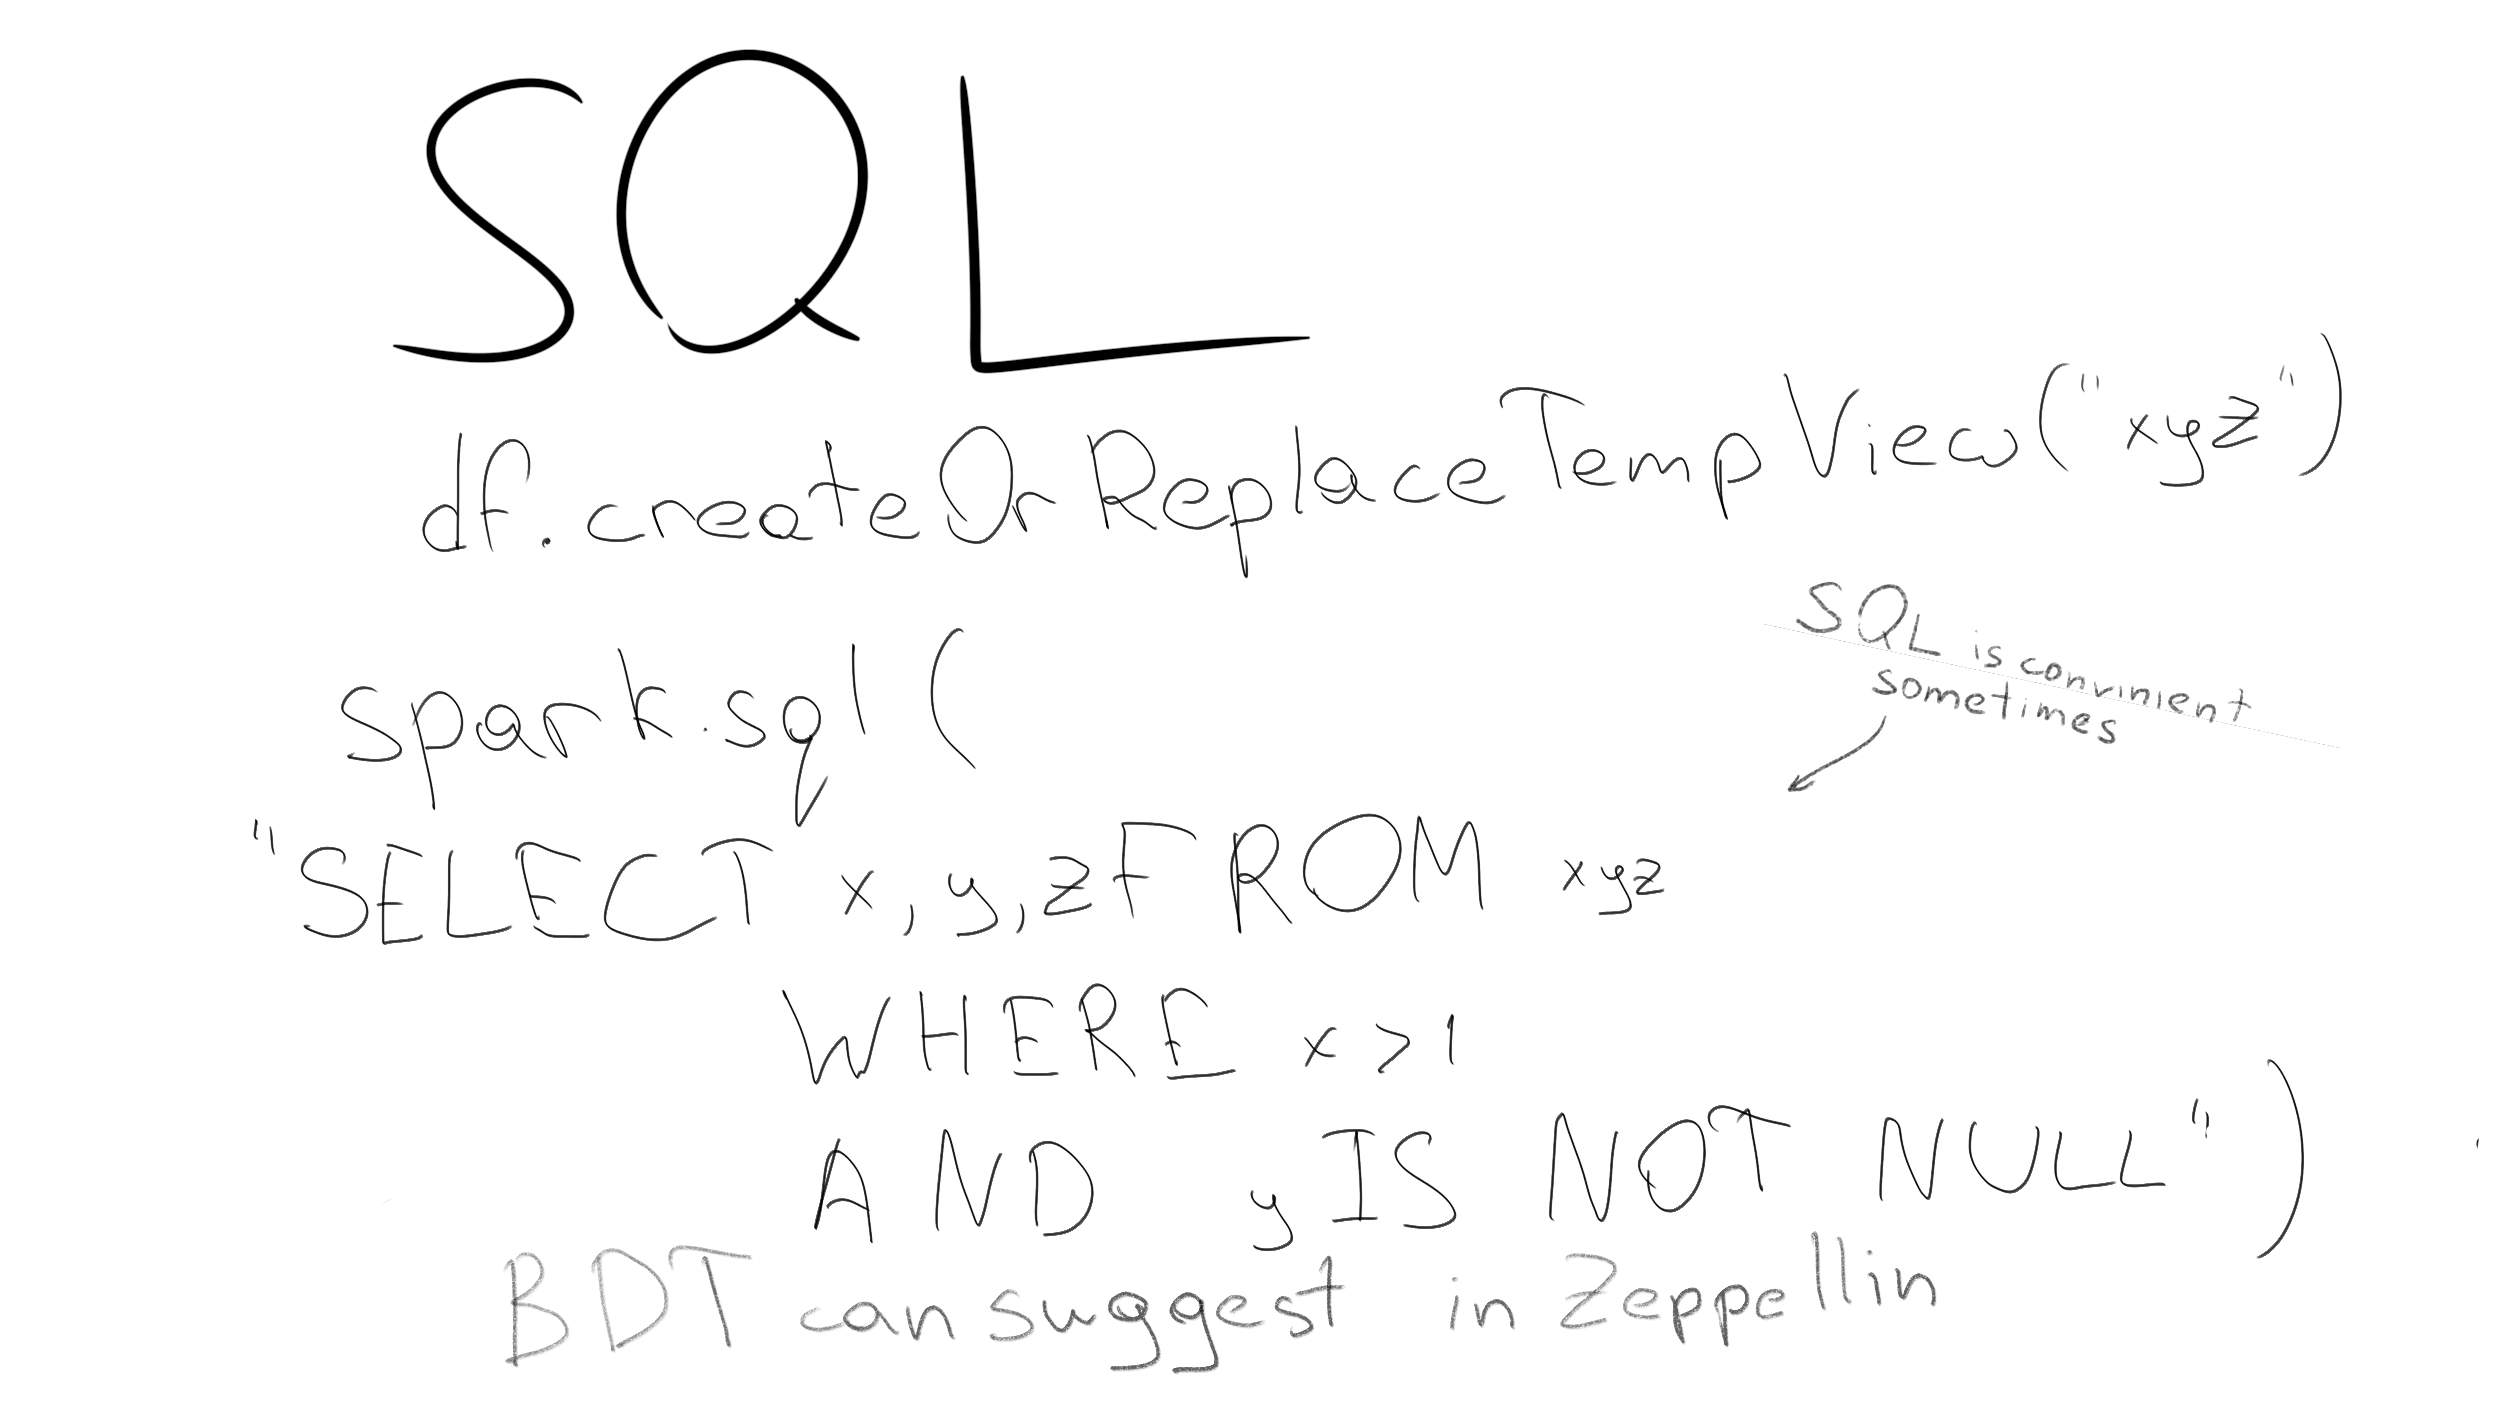 SQL
df.createOrReplaceTempView("xyz")
SQL is convinient
sometimes
spark.sql(
"SELECT x,y,z FROM xyz
WHERE x>1
AND y IS NOT NULL")
BDT can suggest in Zeppellin